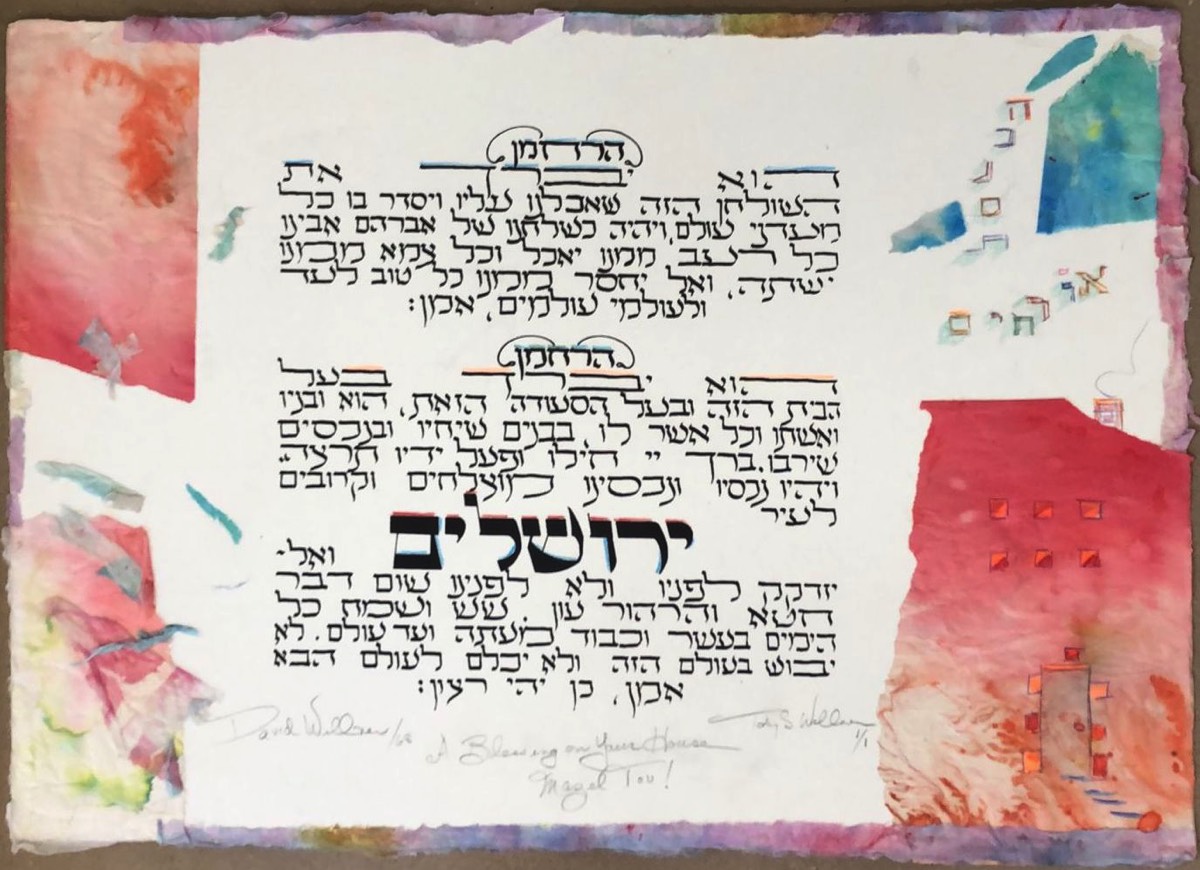 הרחמן
הוא יברך את
השולחן הזה שאכלנו עליו ויסדר בו כל
מעדני עולם, ויהיה כשלחנו של אברהם אבינו
כל רעב ממנו יאכל וכל צמא ממנו
ישתה, ואל יחסר ממנו כל טוב לעד
ולעולמי עולמים, אמן:
הרחמן
הוא יברך בעל
הבית הזה ובעל הסעודה הזאת, הוא ובניו
ואשתו וכל אשר לו, בבנים שיחיו ובנכסים
שירבו. ברך יי חילו ופעל ידיו תרצה.
ויהיו נכסיו ונכסינו מוצלחים וקרובים
לעיר
ירושלים
ואל־
יזדקק לפניו ולא לפנינו שום דבר
חטא והרהור עון. שש ושמח כל
הימים בעשר וכבוד מעתה ועד עולם. לא
יבוש בעולם הזה ולא יכלם לעולם הבא
אמן, כן יהי רצון:
הכנסת
אורחים
David
1/1
A Blessing on Your House
Mazel Tov!